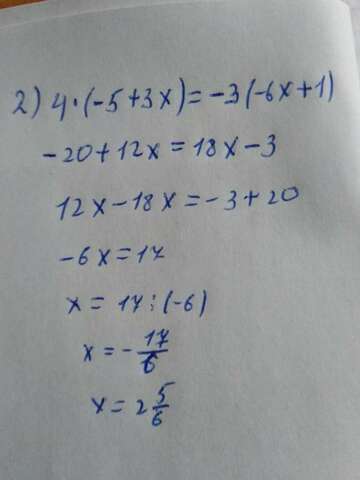 2) 4·(-5+3x)=-3(-6x+1)
-20+12x=18x-3
12x-18x=-3+20
-6x=17
x=17:(-6)
x=-17/6
x=2 5/6